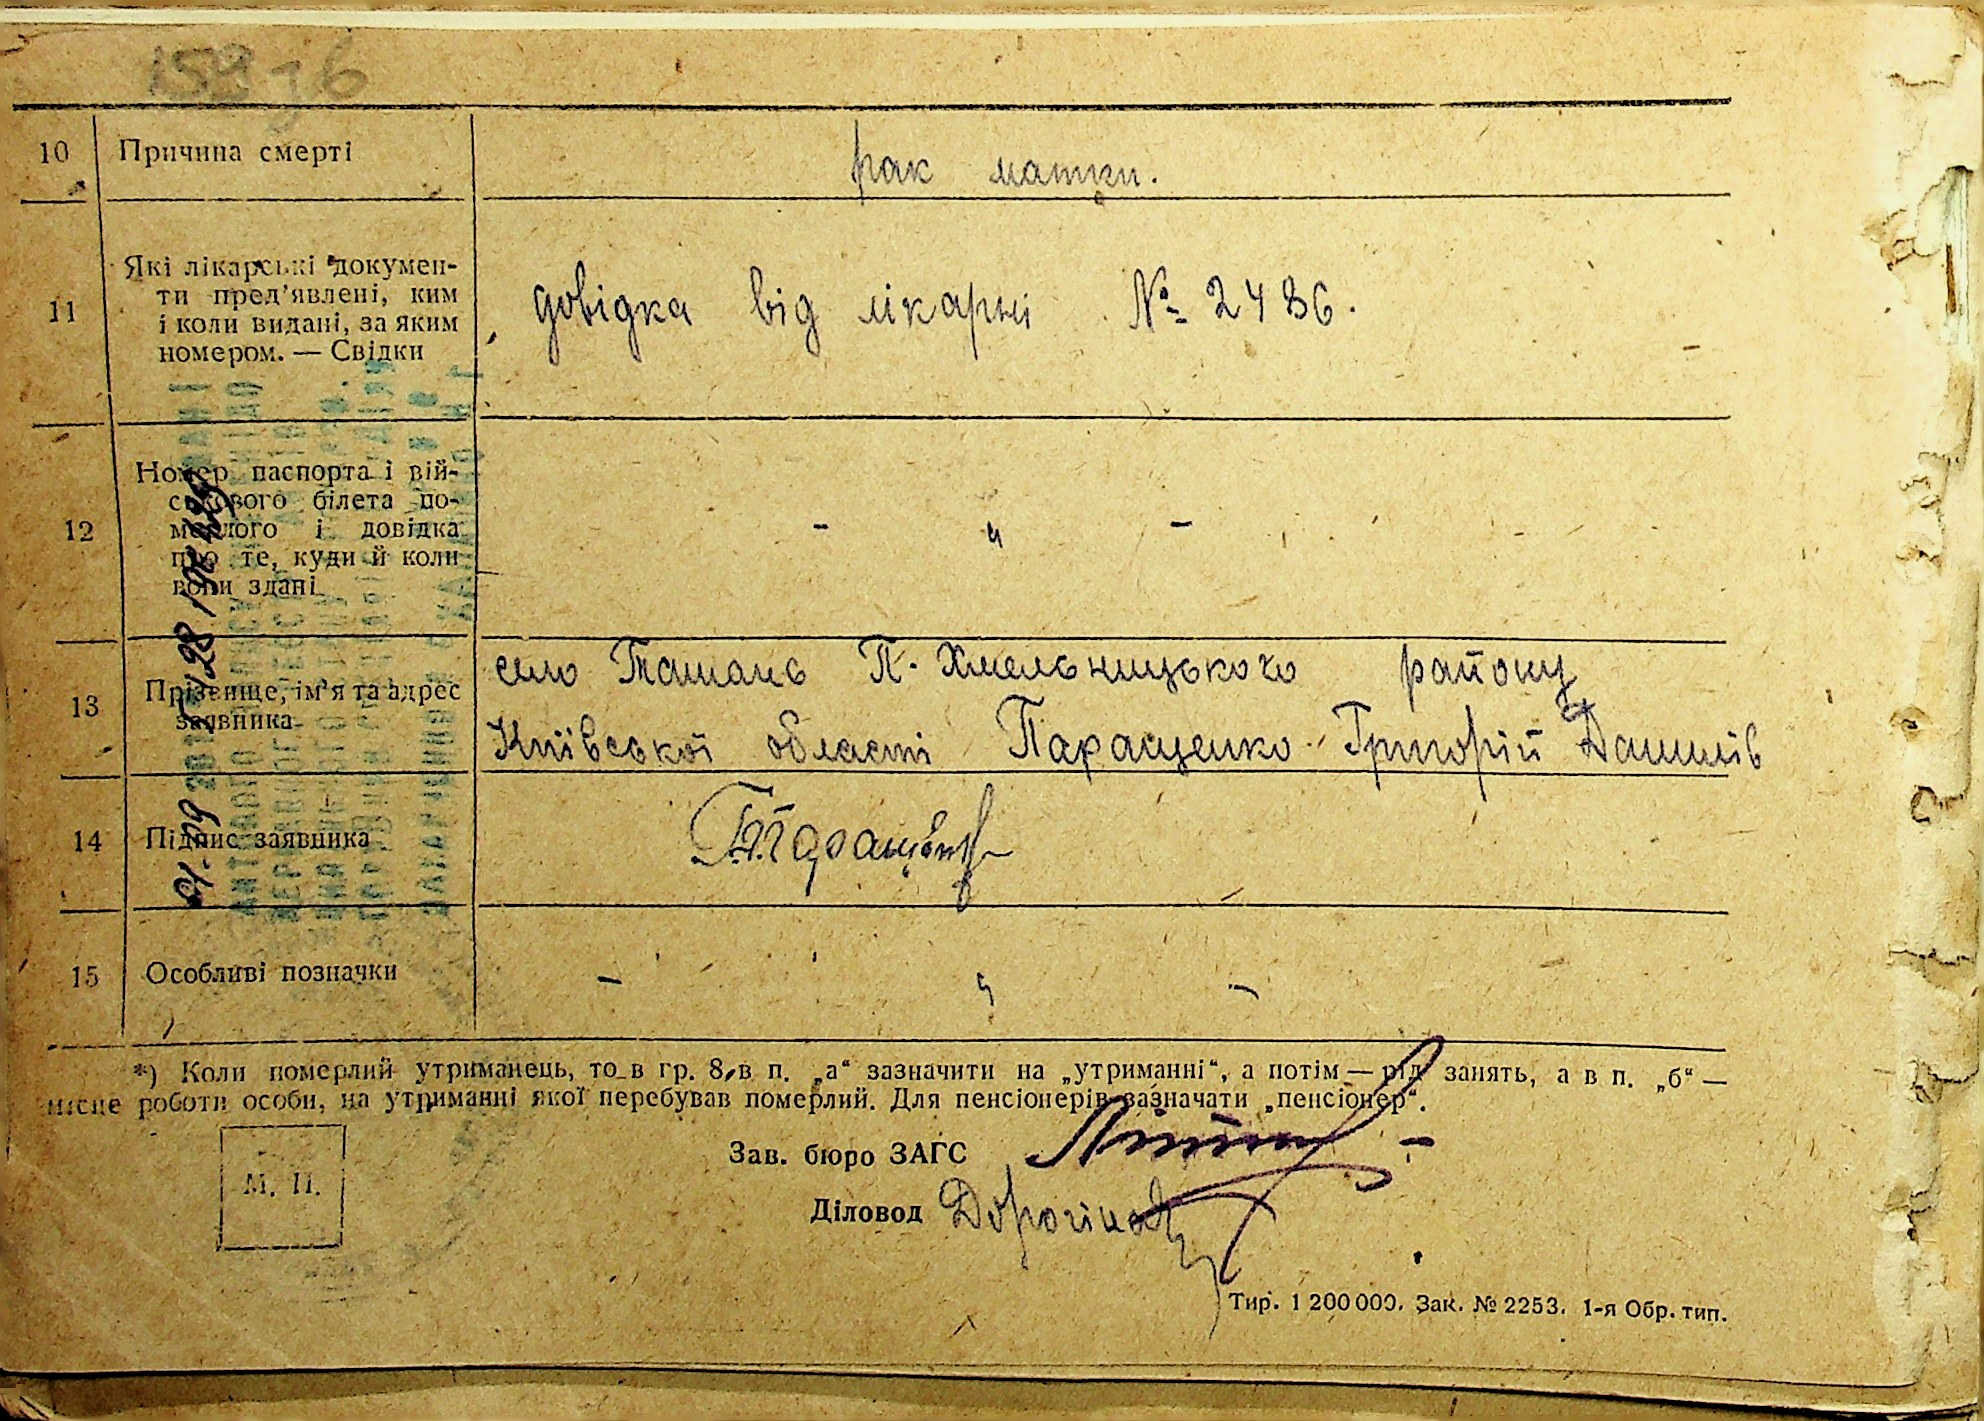 10 Причина смерті рак матки.
11 Які лікарські документи
ти пред'явлені, ким
і коли видані, за яким
номером. — Свідки
довідка від лікарні № 2486.
12 Номер паспорта і вій-
ськового білета по-
мерлого і довідка
про те, куди й коли
вони здані
- " -
13 Прізвище, ім'я та адрес
заявника
село Ташань П. Хмельницького району
Київської області Паращенко Григорій Данилів
14 Підпис заявника
15 Особливі позначки - " -
*) Коли померлий утриманець, то в гр. 8, в п. „а“ зазначити на „утриманні“, а потім — рід занять, а в п. „б“ —
місце роботи особи, на утриманні якої перебував померлий. Для пенсіонерів зазначати „пенсіонер“.
М. П.
Зав. бюро ЗАГС
Діловод
Тир. 1 200 000. Зак. № 2253. 1-я Обр. тип.